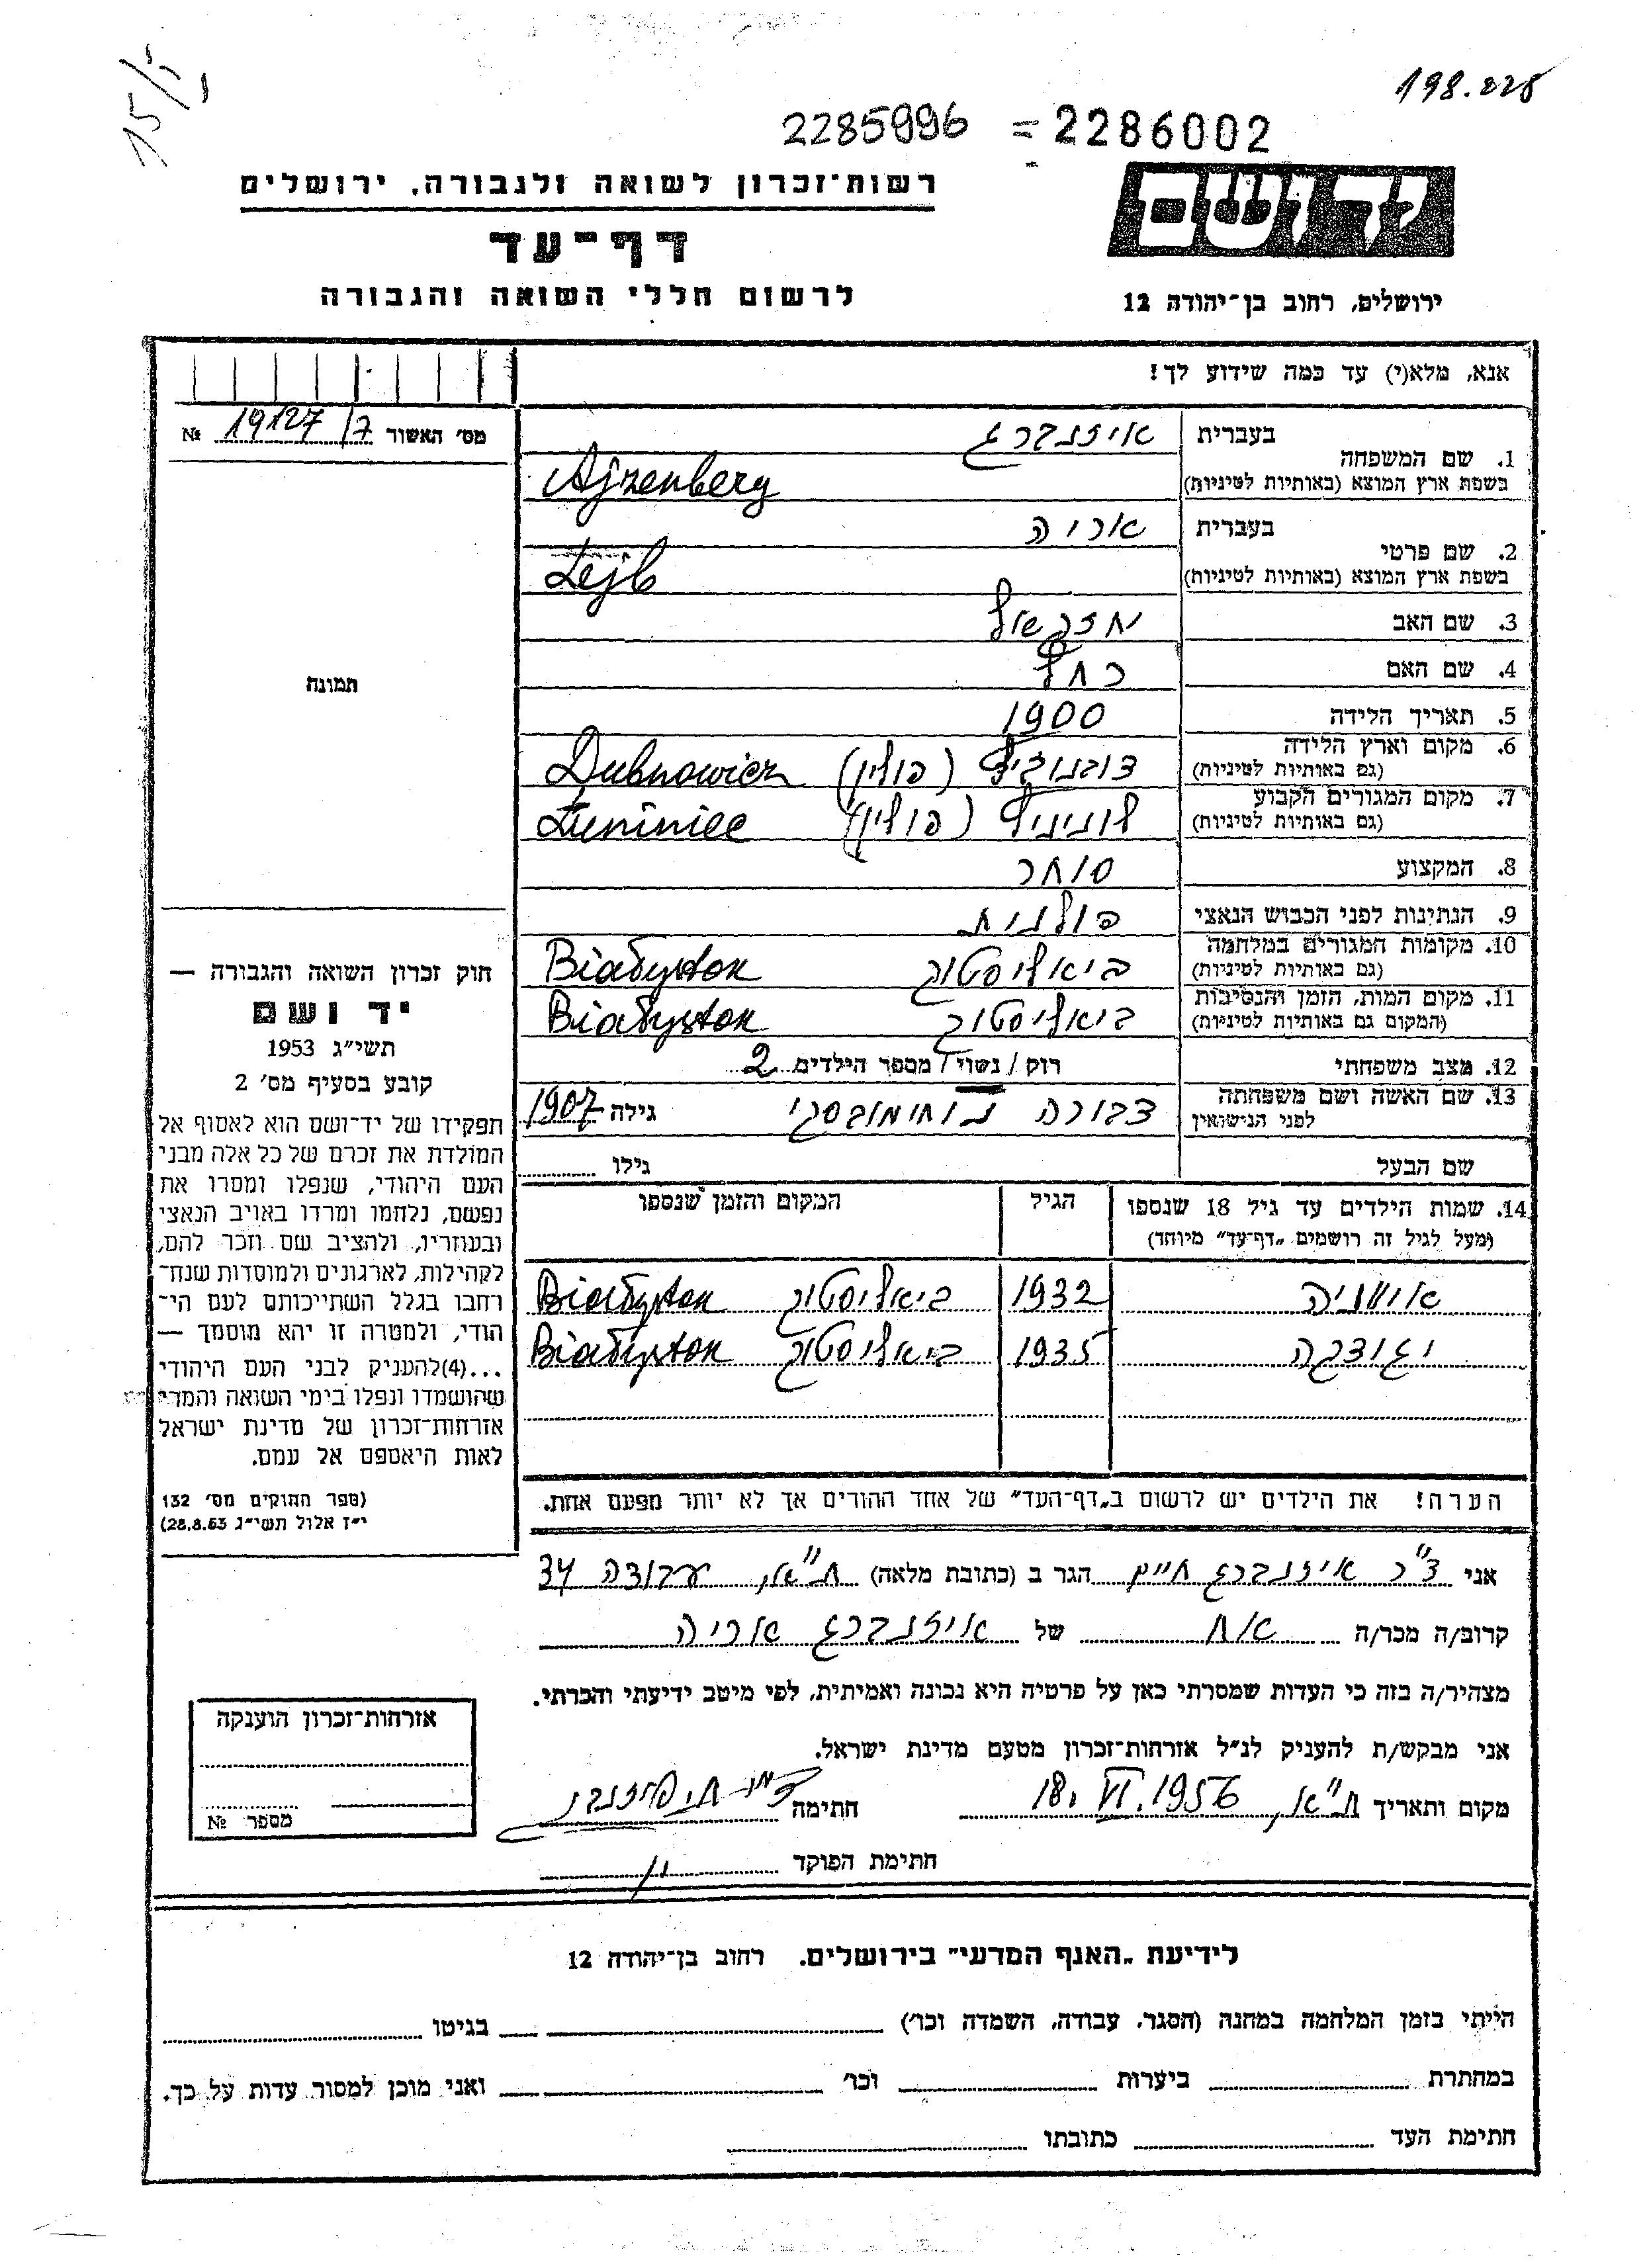 198.225
2285996 = 2286002
יד ושם
רשות־זכרון לשואה ולגבורה, ירושלים
דף־עד
לרשום חללי השואה והגבורה
ירושלים, רחוב בן־יהודה 12
אנא, מלא(י) עד כמה שידוע לך!
מס׳ האשור 19127/7 №
1. שם המשפחה
בעברית איזנברג
בשפת ארץ המוצא (באותיות לטיניות) Ajzenberg
2. שם פרטי
בעברית אריה
בשפת ארץ המוצא (באותיות לטיניות) Lejb
3. שם האב יחזקאל
4. שם האם רחל
5. תאריך הלידה 1900
6. מקום וארץ הלידה
(גם באותיות לטיניות) (פולין) Dubnowicz
7. מקום המגורים הקבוע
(גם באותיות לטיניות) לוניניץ (פולין) Łuniniec
8. המקצוע סוחר
9. הנתינות לפני הכבוש הנאצי פולנית
10. מקומות המגורים במלחמה
(גם באותיות לטיניות) ביאליסטוק Białystok
11. מקום המות, הזמן והנסיבות
(המקום גם באותיות לטיניות) ביאליסטוק Białystok
12. מצב משפחתי רוק / נשוי / מספר הילדים 2
13. שם האשה ושם משפחתה
לפני הנישואין דבורה נוחימובסקי גילה 1907
שם הבעל גילו
14. שמות הילדים עד גיל 18 שנספו הגיל המקום והזמן שנספו
(מעל לגיל זה רושמים „דף־עד״ מיוחד)
1932 ביאליסטוק Białystok
1935 ביאליסטוק Białystok
הערה! את הילדים יש לרשום ב„דף־העד״ של אחד ההורים אך לא יותר מפעם אחת.
תמונה
חוק זכרון השואה והגבורה —
יד ושם
תשי״ג 1953
קובע בסעיף מס׳ 2
תפקידו של יד־ושם הוא לאסוף אל
המולדת את זכרם של כל אלה מבני
העם היהודי, שנפלו ומסרו את
נפשם, נלחמו ומרדו באויב הנאצי
ובעוזריו, ולהציב שם וזכר להם,
לקהילות, לארגונים ולמוסדות שנח־
רחבו בגלל השתייכותם לעם הי־
הודי, ולמטרה זו יהא מוסמך —
...(4)להעניק לבני העם היהודי
שהושמדו ונפלו בימי השואה והמרי
אזרחות־זכרון של מדינת ישראל
לאות היאספם אל עמם.
(ספר החוקים מס׳ 132
י״ז אלול תשי״ג 28.8.53)
אני ד״ר איזנברג חיים הגר ב (כתובת מלאה) ת״א, עבודה 34
קרוב/ה מכר/ה אח של איזנברג אריה
מצהיר/ה בזה כי העדות שמסרתי כאן על פרטיה היא נכונה ואמיתית, לפי מיטב ידיעתי והכרתי.
אני מבקש/ת להעניק לנ״ל אזרחות־זכרון מטעם מדינת ישראל.
מקום ותאריך ת״א, 18.VI.1956 חתימה
חתימת הפוקד
אזרחות־זכרון הוענקה
מספר №
לידיעת „האנף המדעי״ בירושלים. רחוב בן־יהודה 12
הייתי בזמן המלחמה במחנה (הסגר, עבודה, השמדה וכו׳) בגיטו
במחתרת ביערות וכו׳ ואני מוכן למסור עדות על כך.
חתימת העד כתובתו